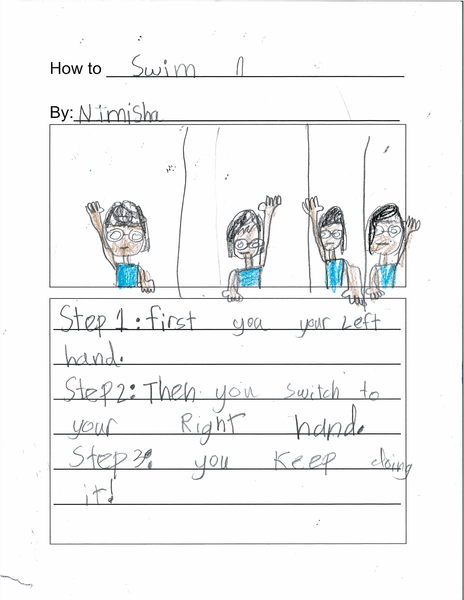 How to Swim
By: Nimisha
Step 1: first you your Left
hand.
Step2: Then you switch to
your Right hand.
Step 3: you keep doing
it!